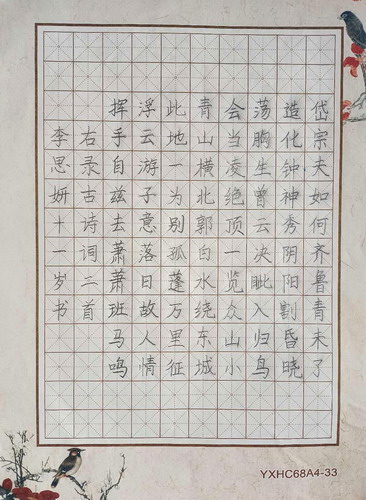 岱宗夫如何齐鲁青未了
造化钟神秀阴阳割昏晓
荡胸生曾云决眦入归鸟
会当凌绝顶一览众山小
青山横北郭白水绕东城
此地一为别孤蓬万里征
浮云游子意落日故人情
挥手自兹去萧萧班马鸣
右录古诗词二首
李思妍十一岁书
YXHC68A4-33